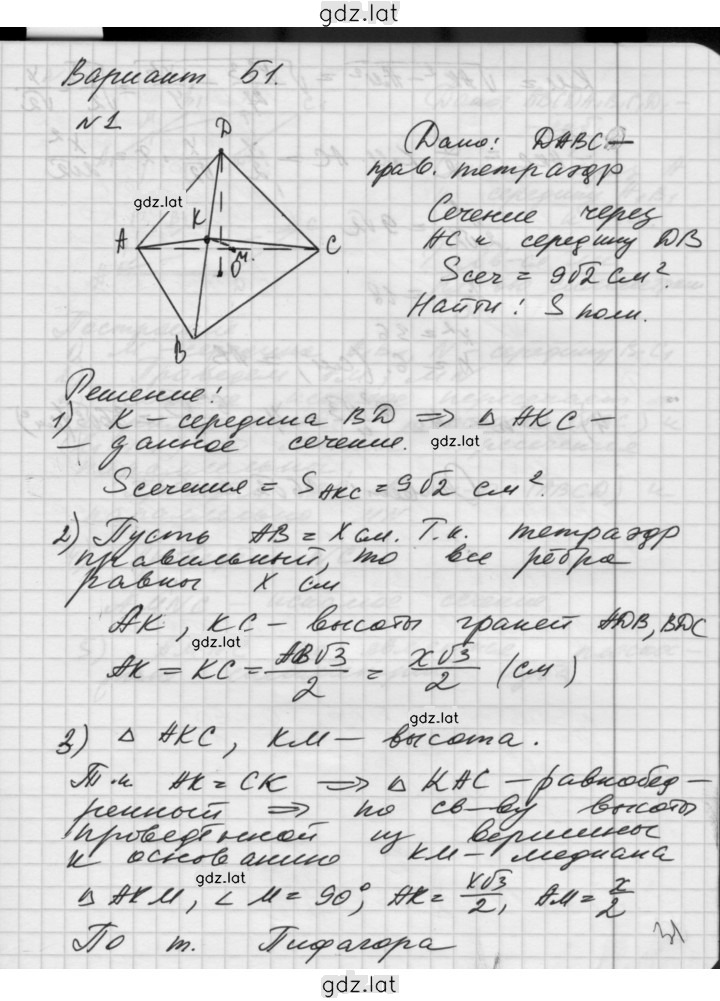 gdz.lat
Вариант Б1.
№1
D
gdz.lat
K
A
M.
O
C
B
Дано: DABC –
прав. тетраэдр
Сечение через
AC и середину DB
Sсеч = 9√2 см².
Найти: S полн.
Решение:
1) K – середина BD ⟹ △ AKC –
– данное сечение.
gdz.lat
Sсечения = S_AKC = 9√2 см².
2) Пусть AB = x см. Т.к. тетраэдр
правильный, то все рёбра
равны x см
AK, KC – высоты граней ADB, BDC
gdz.lat
AK = KC = AB√3/2 = x√3/2 (см)
gdz.lat
3) △ AKC, KM – высота.
Т.к. AK = CK ⟹ △ KAC – равнобед-
ренный ⟹ по св-ву высоты
проведенной из вершины
к основанию KM – медиана
gdz.lat
△ AKM, ∠ M = 90°, AK = x√3/2, AM = x/2
По т. Пифагора
31
gdz.lat